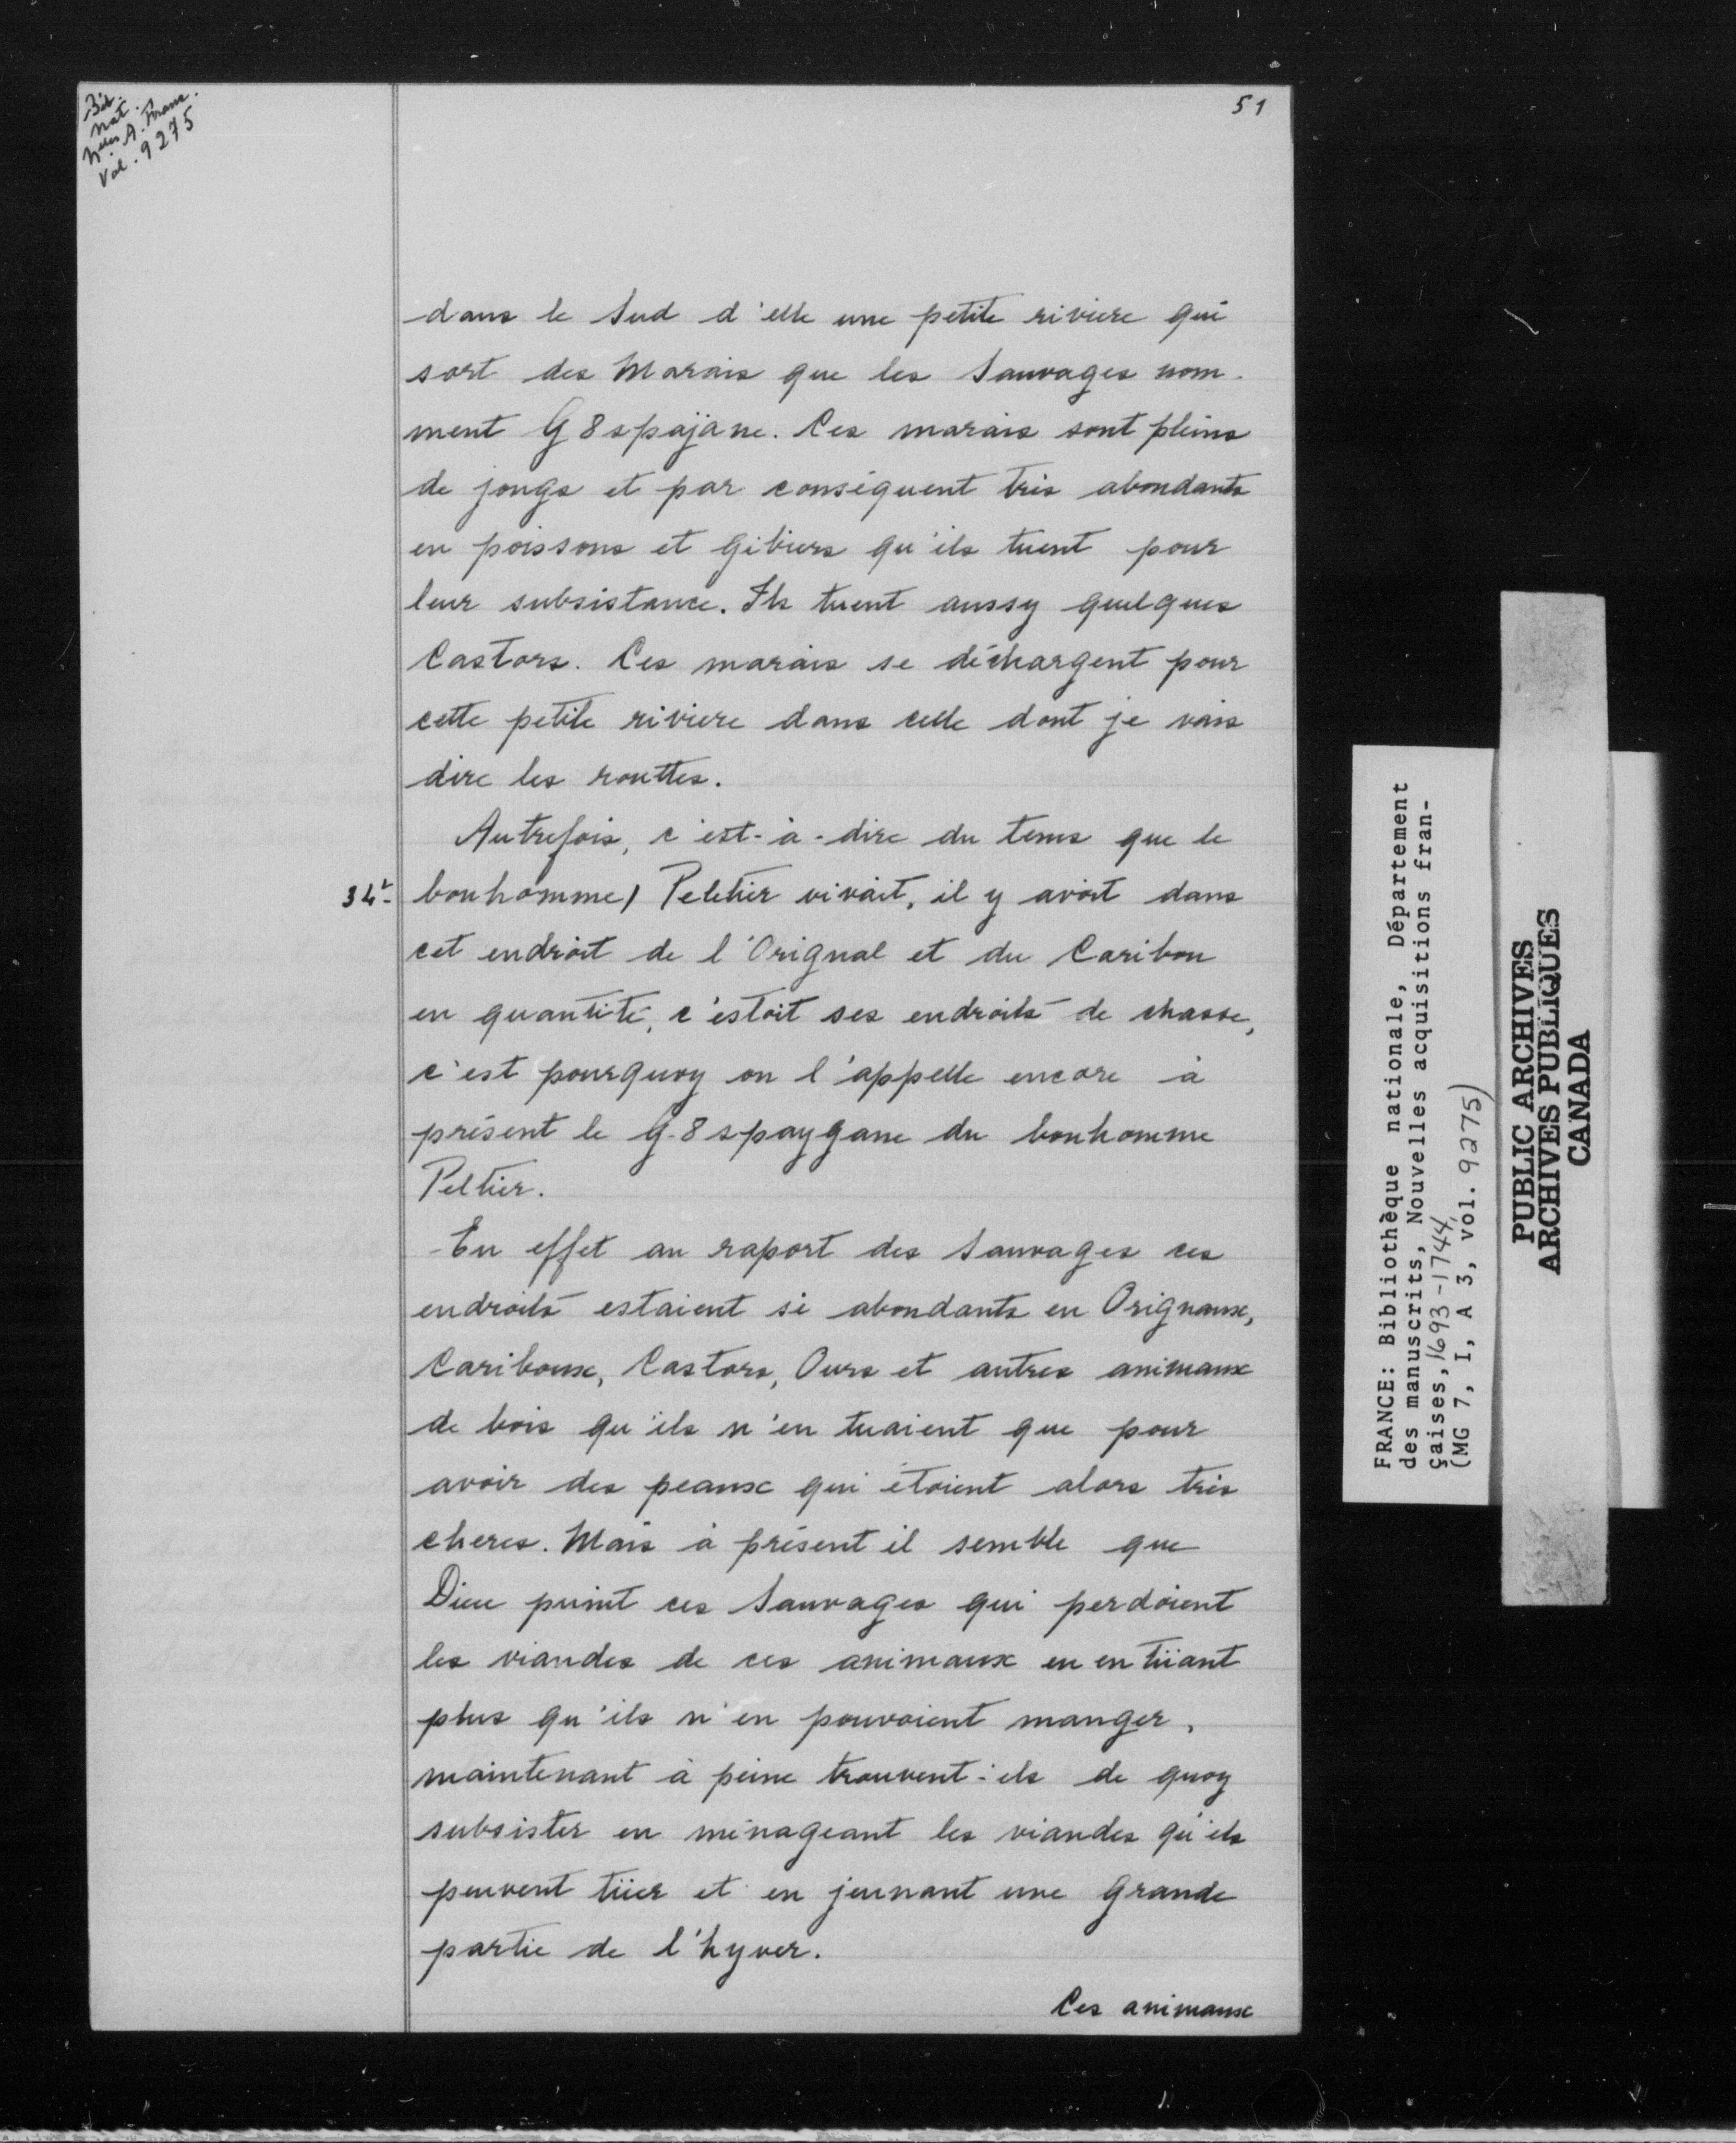 Bib.
nat.
Nelles A. Franc.
Vol. 9275
51
dans le Sud d'elle une petite riviere qui
sort des Marais que les Sauvages nom-
ment G8spajane. Ces marais sont pleins
de jongs et par conséquent très abondants
en poissons et Gibiers qu'ils tuent pour
leur subsistance. Ils tuent aussy quelques
Castors. Ces marais se déchargent pour
cette petite riviere dans celle dont je vais
dire les routtes.
Autrefois, c'est-à-dire du tems que le
34v- bonhomme) Peletier vivait, il y avoit dans
cet endroit de l'Orignal et du Caribou
en quantité, c'estoit ses endroits de chasse,
c'est pourquoy on l'appelle encore à
présent le G-8spaygane du bonhomme
Peltier.
En effet au raport des Sauvages ces
endroits estaient si abondants en Orignaux,
Cariboux, Castors, Ours et autres animaux
de bois qu'ils n'en tuaient que pour
avoir des peaux qui étoient alors très
cheres. Mais à présent il semble que
Dieu punit ces Sauvages qui perdoient
les viandes de ces animaux en en tüant
plus qu'ils n'en pouvoient manger,
maintenant à peine trouvent-ils de quoy
subsister en ménageant les viandes qu'ils
peuvent tüer et en jeunant une Grande
partie de l'hyver.
Ces animaux
FRANCE: Bibliothèque nationale, Département
des manuscrits, Nouvelles acquisitions fran-
çaises, 1693-1744
(MG 7, I, A 3, vol. 9275)
PUBLIC ARCHIVES
ARCHIVES PUBLIQUES
CANADA